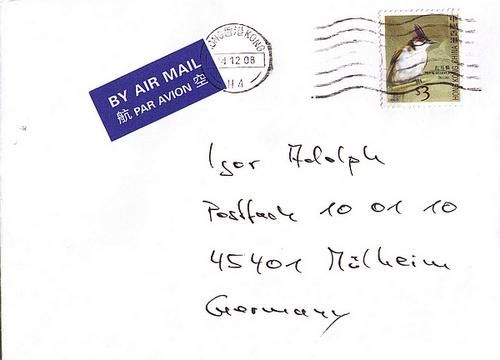 BY AIR MAIL
航 PAR AVION 空
HONG KONG
4 12 08
$3
HONG KONG, CHINA
Igor Adolph
Postfach 10 01 10
45401 Mülheim
Germany